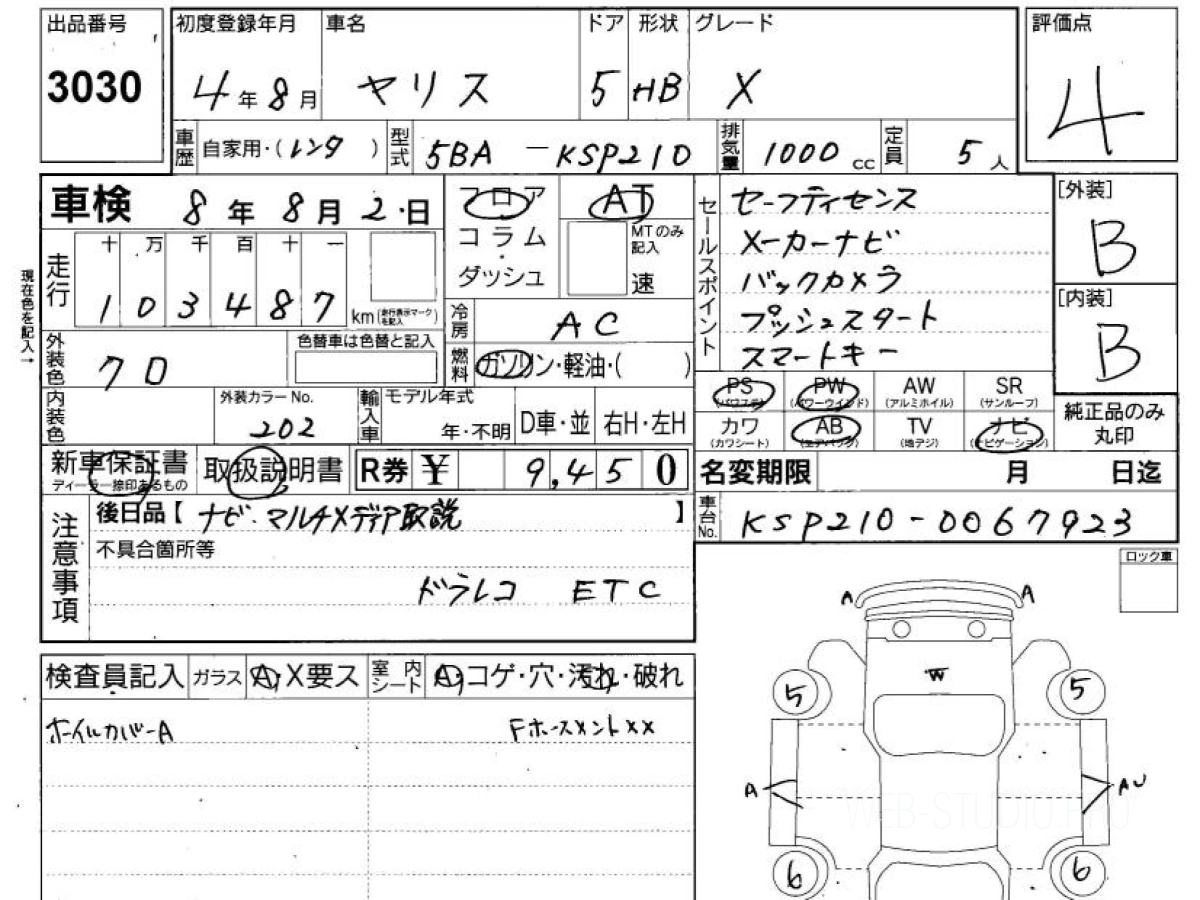 出品番号 初度登録年月 車名 ドア 形状 グレード 評価点
3030 4年8月 ヤリス 5 HB X 4
車歴 自家用・(レンタ) 型式 5BA-KSP210 排気量 1000cc 定員 5人
車検 8年8月2日 フロア AT セールスポイント セーフティセンス [外装]
コラム MTのみ記入 メーカーナビ B
ダッシュ 速 バックカメラ
走行 十 万 千 百 十 一
103487 km (走行表示マークを記入) 冷房 AC プッシュスタート [内装]
現在色を記入→
外装色 クロ 色替車は色替と記入 燃料 ガソリン・軽油・( ) スマートキー B
PS (パワステ) PW (パワーウインド) AW (アルミホイル) SR (サンルーフ)
内装色 外装カラーNo. 202 輸入車 モデル年式 年・不明 D車・並 右H・左H カワ (カワシート) AB (エアバッグ) TV (地デジ) ナビ (ナビゲーション) 純正品のみ丸印
新車保証書 ディーラー捺印あるもの 取扱説明書 R券 ¥ 9,450 名変期限 月 日迄
注意事項 後日品【ナビ・マルチメディア取説】 車台No. KSP210-0067923
不具合箇所等
ドラレコ ETC
ロック車
A A
検査員記入 ガラス A・X要ス 室内シート A・コゲ・穴・汚れ・破れ
W
5 5
ホイルカバーA Fホースメント××
A AU
WEB-STUDIO.PRO
6 6